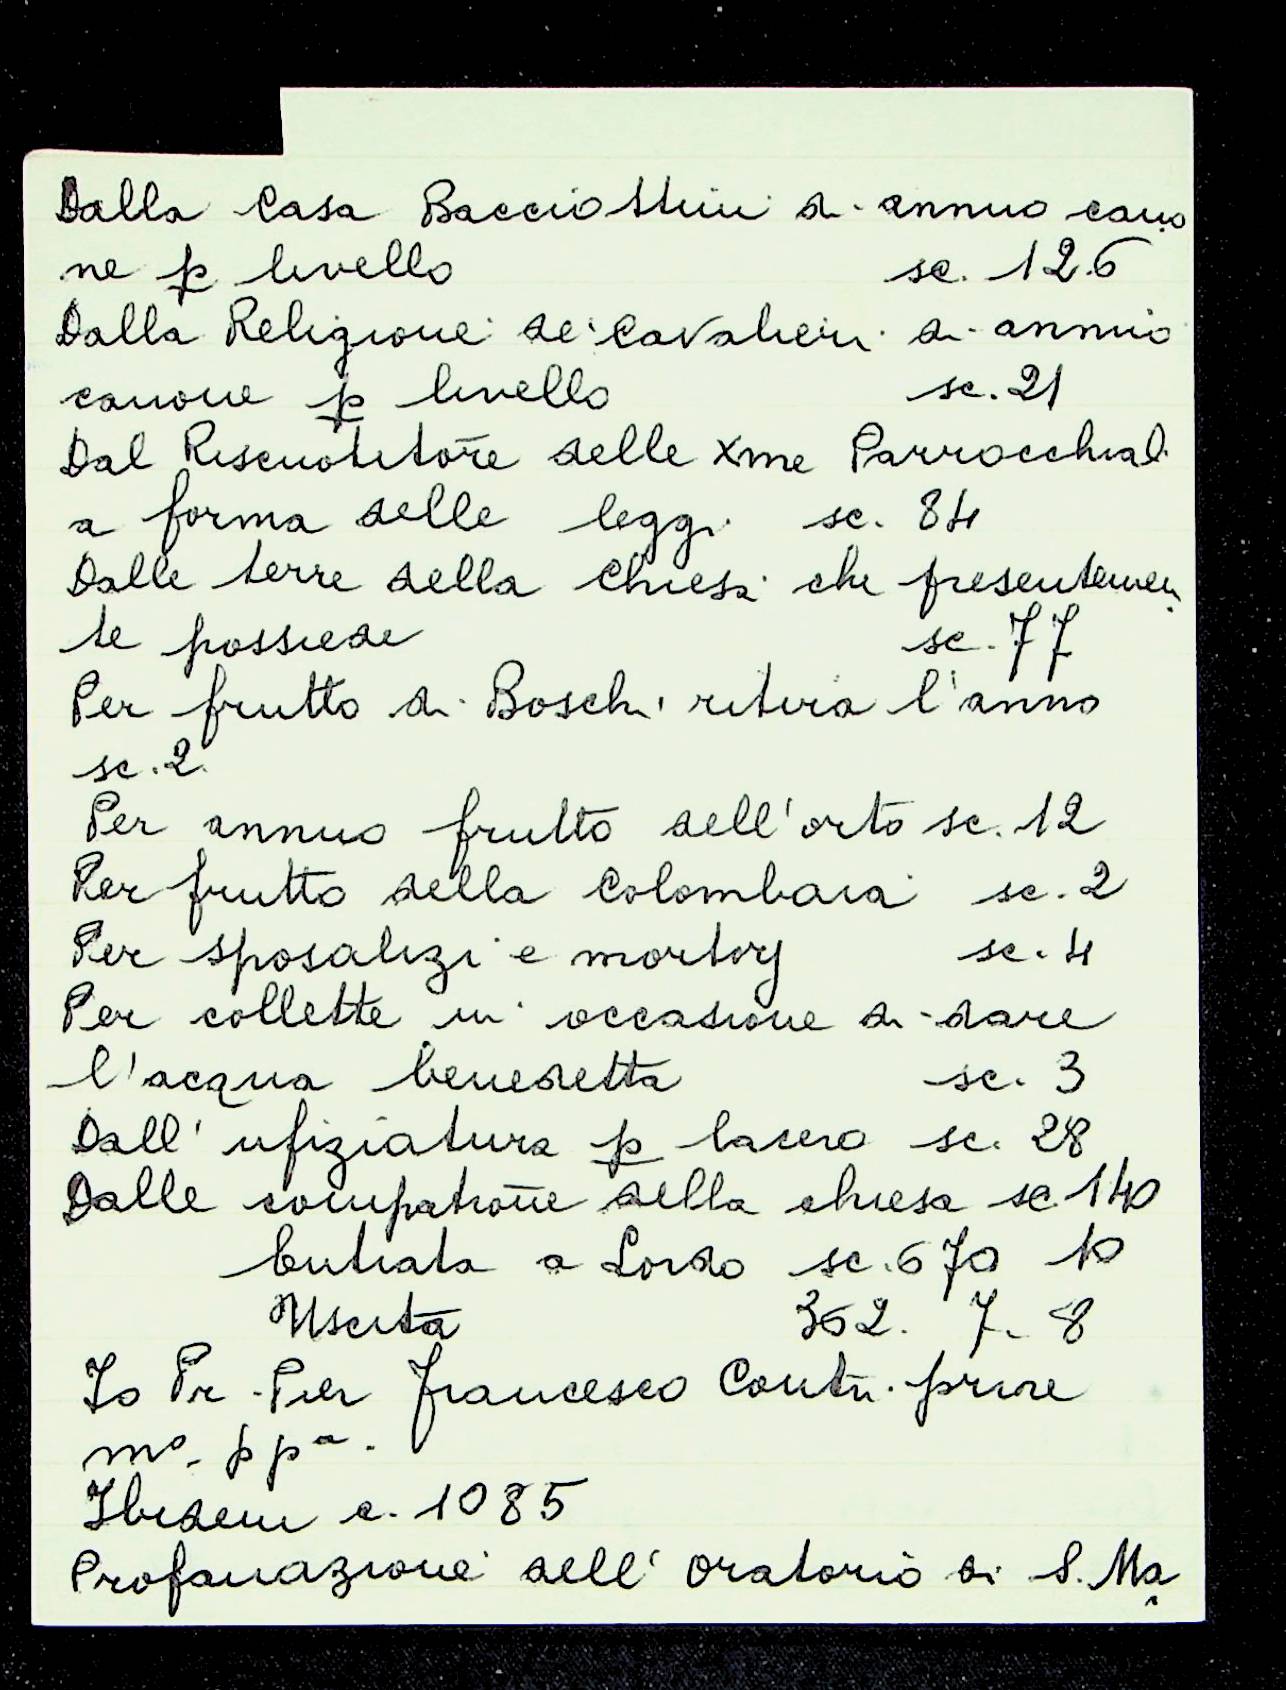 Dalla Casa Bacciottini di annuo cano
ne p livello sc. 126
Dalla Religione de' Cavalieri di annuo
canone p livello sc. 21
Dal Riscuotitore delle Xme Parrocchiali
a forma delle leggi sc. 84
Dalle terre della Chiesa che presentemen
te possiede sc. 77
Per frutto di Boschi ritira l'anno
sc. 2.
Per annuo frutto dell'orto sc. 12
Per frutto della Colombaia sc. 2
Per sposalizi e mortorj sc. 4
Per collette in occasione di dare
l'acqua benedetta sc. 3
Dall' ufiziatura p lascio sc. 28
Dalle compatrone della chiesa sc. 140
Entrata a Lordo sc. 670 10
Uscita 362. 7. 8
Io Pr. Pier Francesco Contri
mo. p pa.
Ibidem c. 1085
Profanazione dell' Oratorio di S. Ma